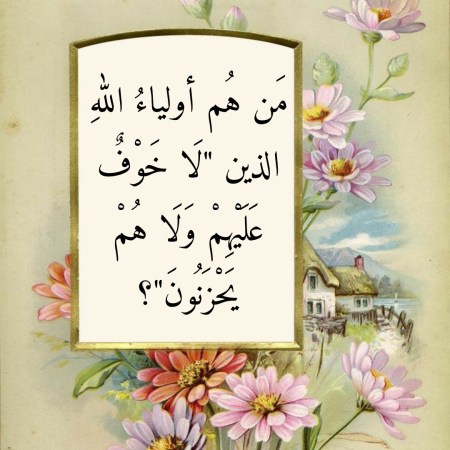 مَن هُم أولياءُ اللهِ
الذين "لَا خَوْفٌ
عَلَيْهِمْ وَلَا هُمْ
يَحْزَنُونَ"؟